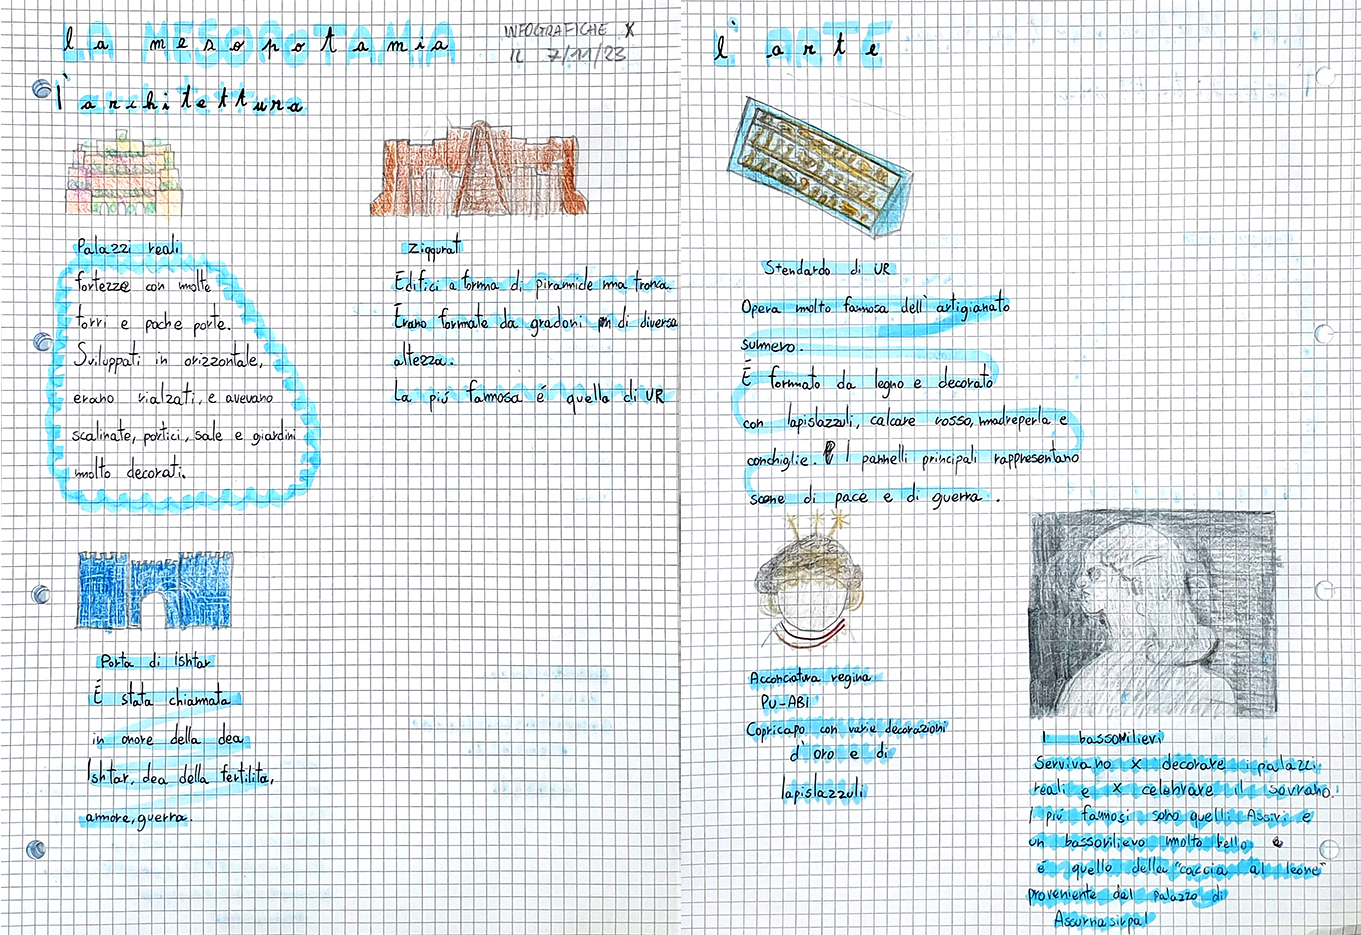 la mesopotamia
INFOGRAFICHE X
IL 7/11/23
l'architettura
Palazzi reali
fortezze con molte
torri e poche porte.
Sviluppati in orizzontale,
erano rialzati, e avevano
scalinate, portici, sale e giardini
molto decorati.
Ziggurat
Edifici a forma di piramide ma tronca.
Erano formate da gradoni di diversa
altezza.
La più famosa é quella di UR
Porta di ishtar
É stata chiamata
in onore della dea
Ishtar, dea della fertilita,
amore, guerra.
l'arte
Stendardo di UR
Opera molto famosa dell'artigianato
sumero.
É formato da legno e decorato
con lapislazzuli, calcare rosso, madreperla e
conchiglie. I pannelli principali rappresentano
scene di pace e di guerra.
Acconciatura regina
PU-ABI
Copricapo con varie decorazioni
d'oro e di
lapislazzuli
I bassorilievi
Servivano x decorare i palazzi
reali e x celebrare il sovrano.
I più famosi sono quelli Assiri e
un bassorilievo molto bello
é quello della "caccia al leone"
proveniente dal palazzo di
Assurnasirpal